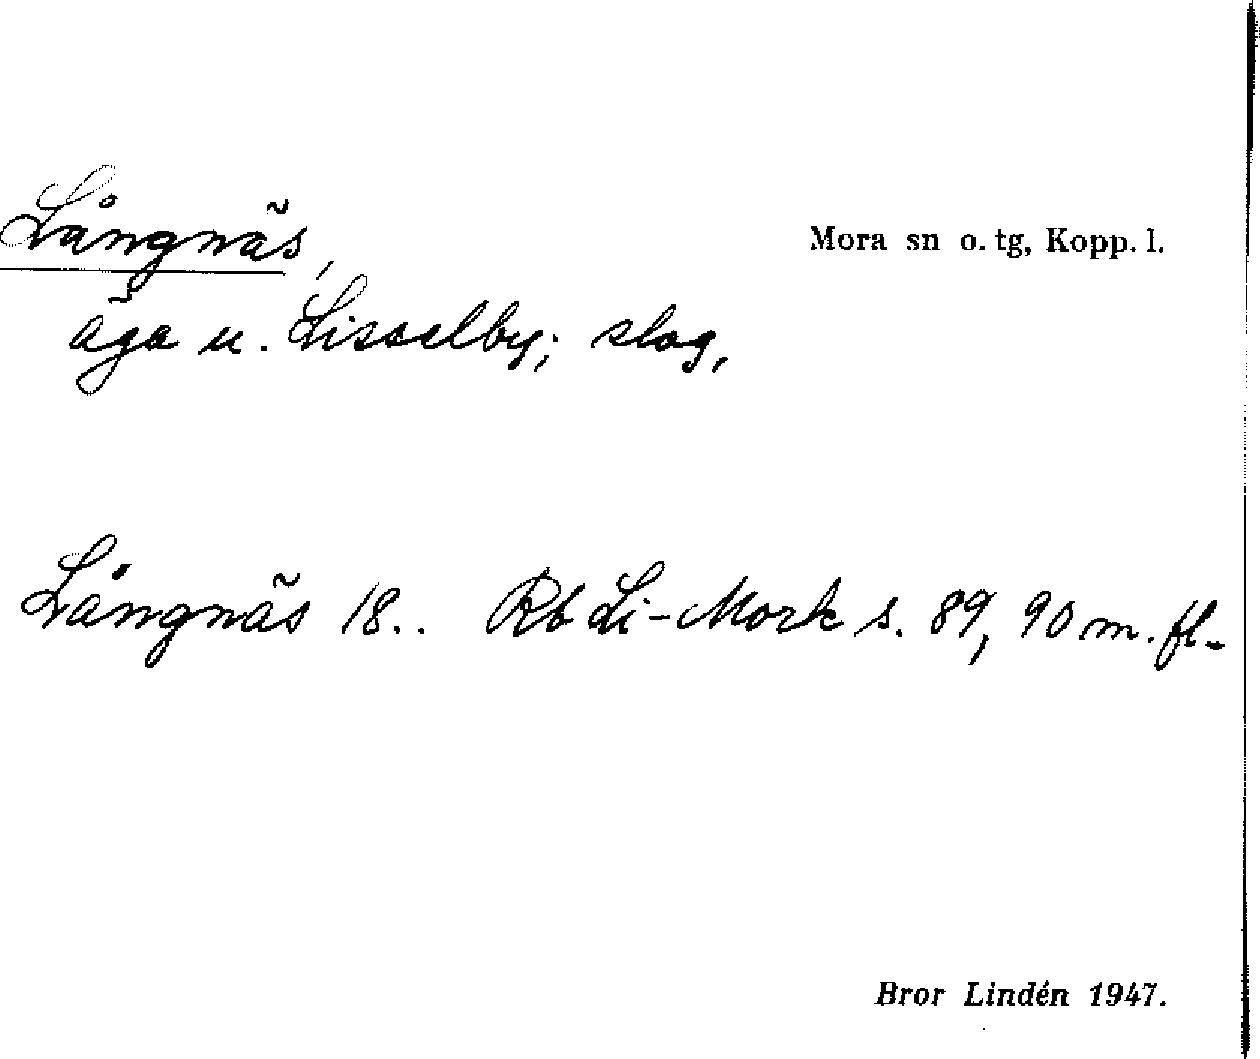 Långnäs,
Mora sn o. tg, Kopp. l.
äga u. Lisselby; slog,
Långnäs 18.. Rb Li-Mork s. 89, 90 m. fl.
Bror Lindén 1947.